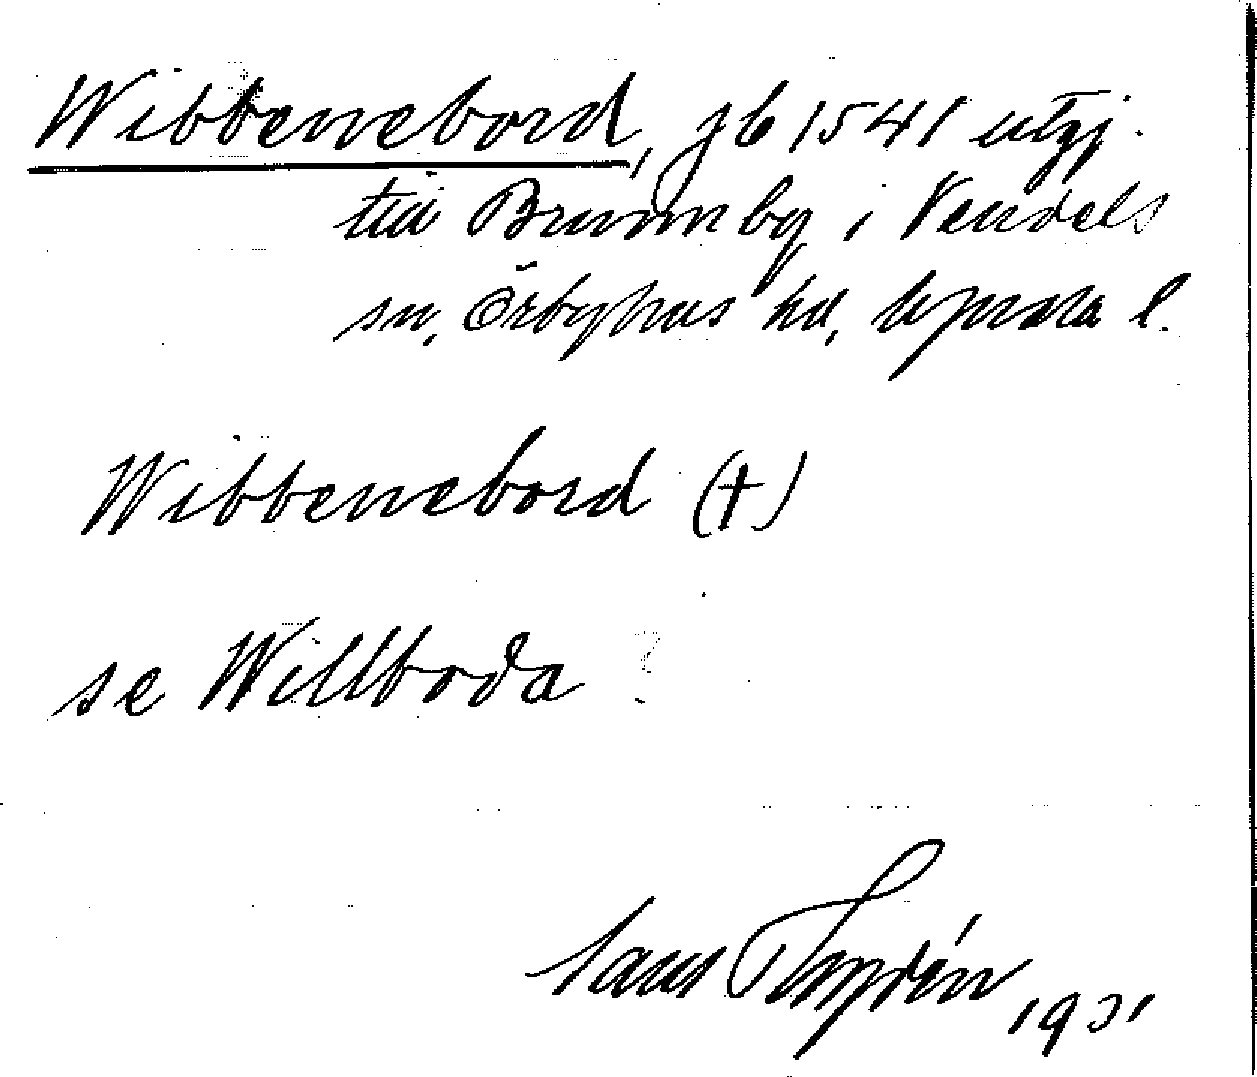 Wibbenebord, jb 1541 utgj.
till Brunnby i Vendels
sn, Örbyhus hd, Upsala l.
Wibbenebord (†)
se Willboda ?
1931